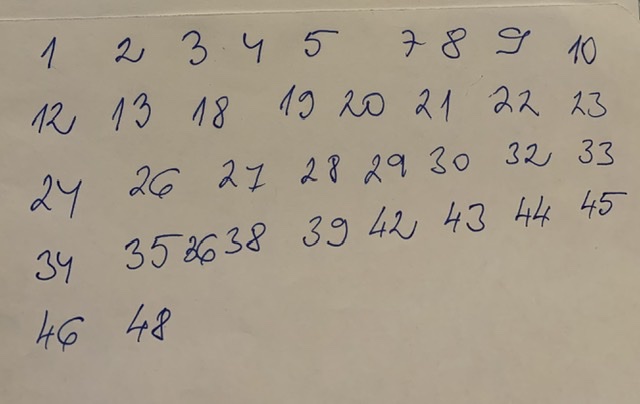 1 2 3 4 5 7 8 9 10
12 13 18 19 20 21 22 23
24 26 27 28 29 30 32 33
34 35 36 38 39 42 43 44 45
46 48